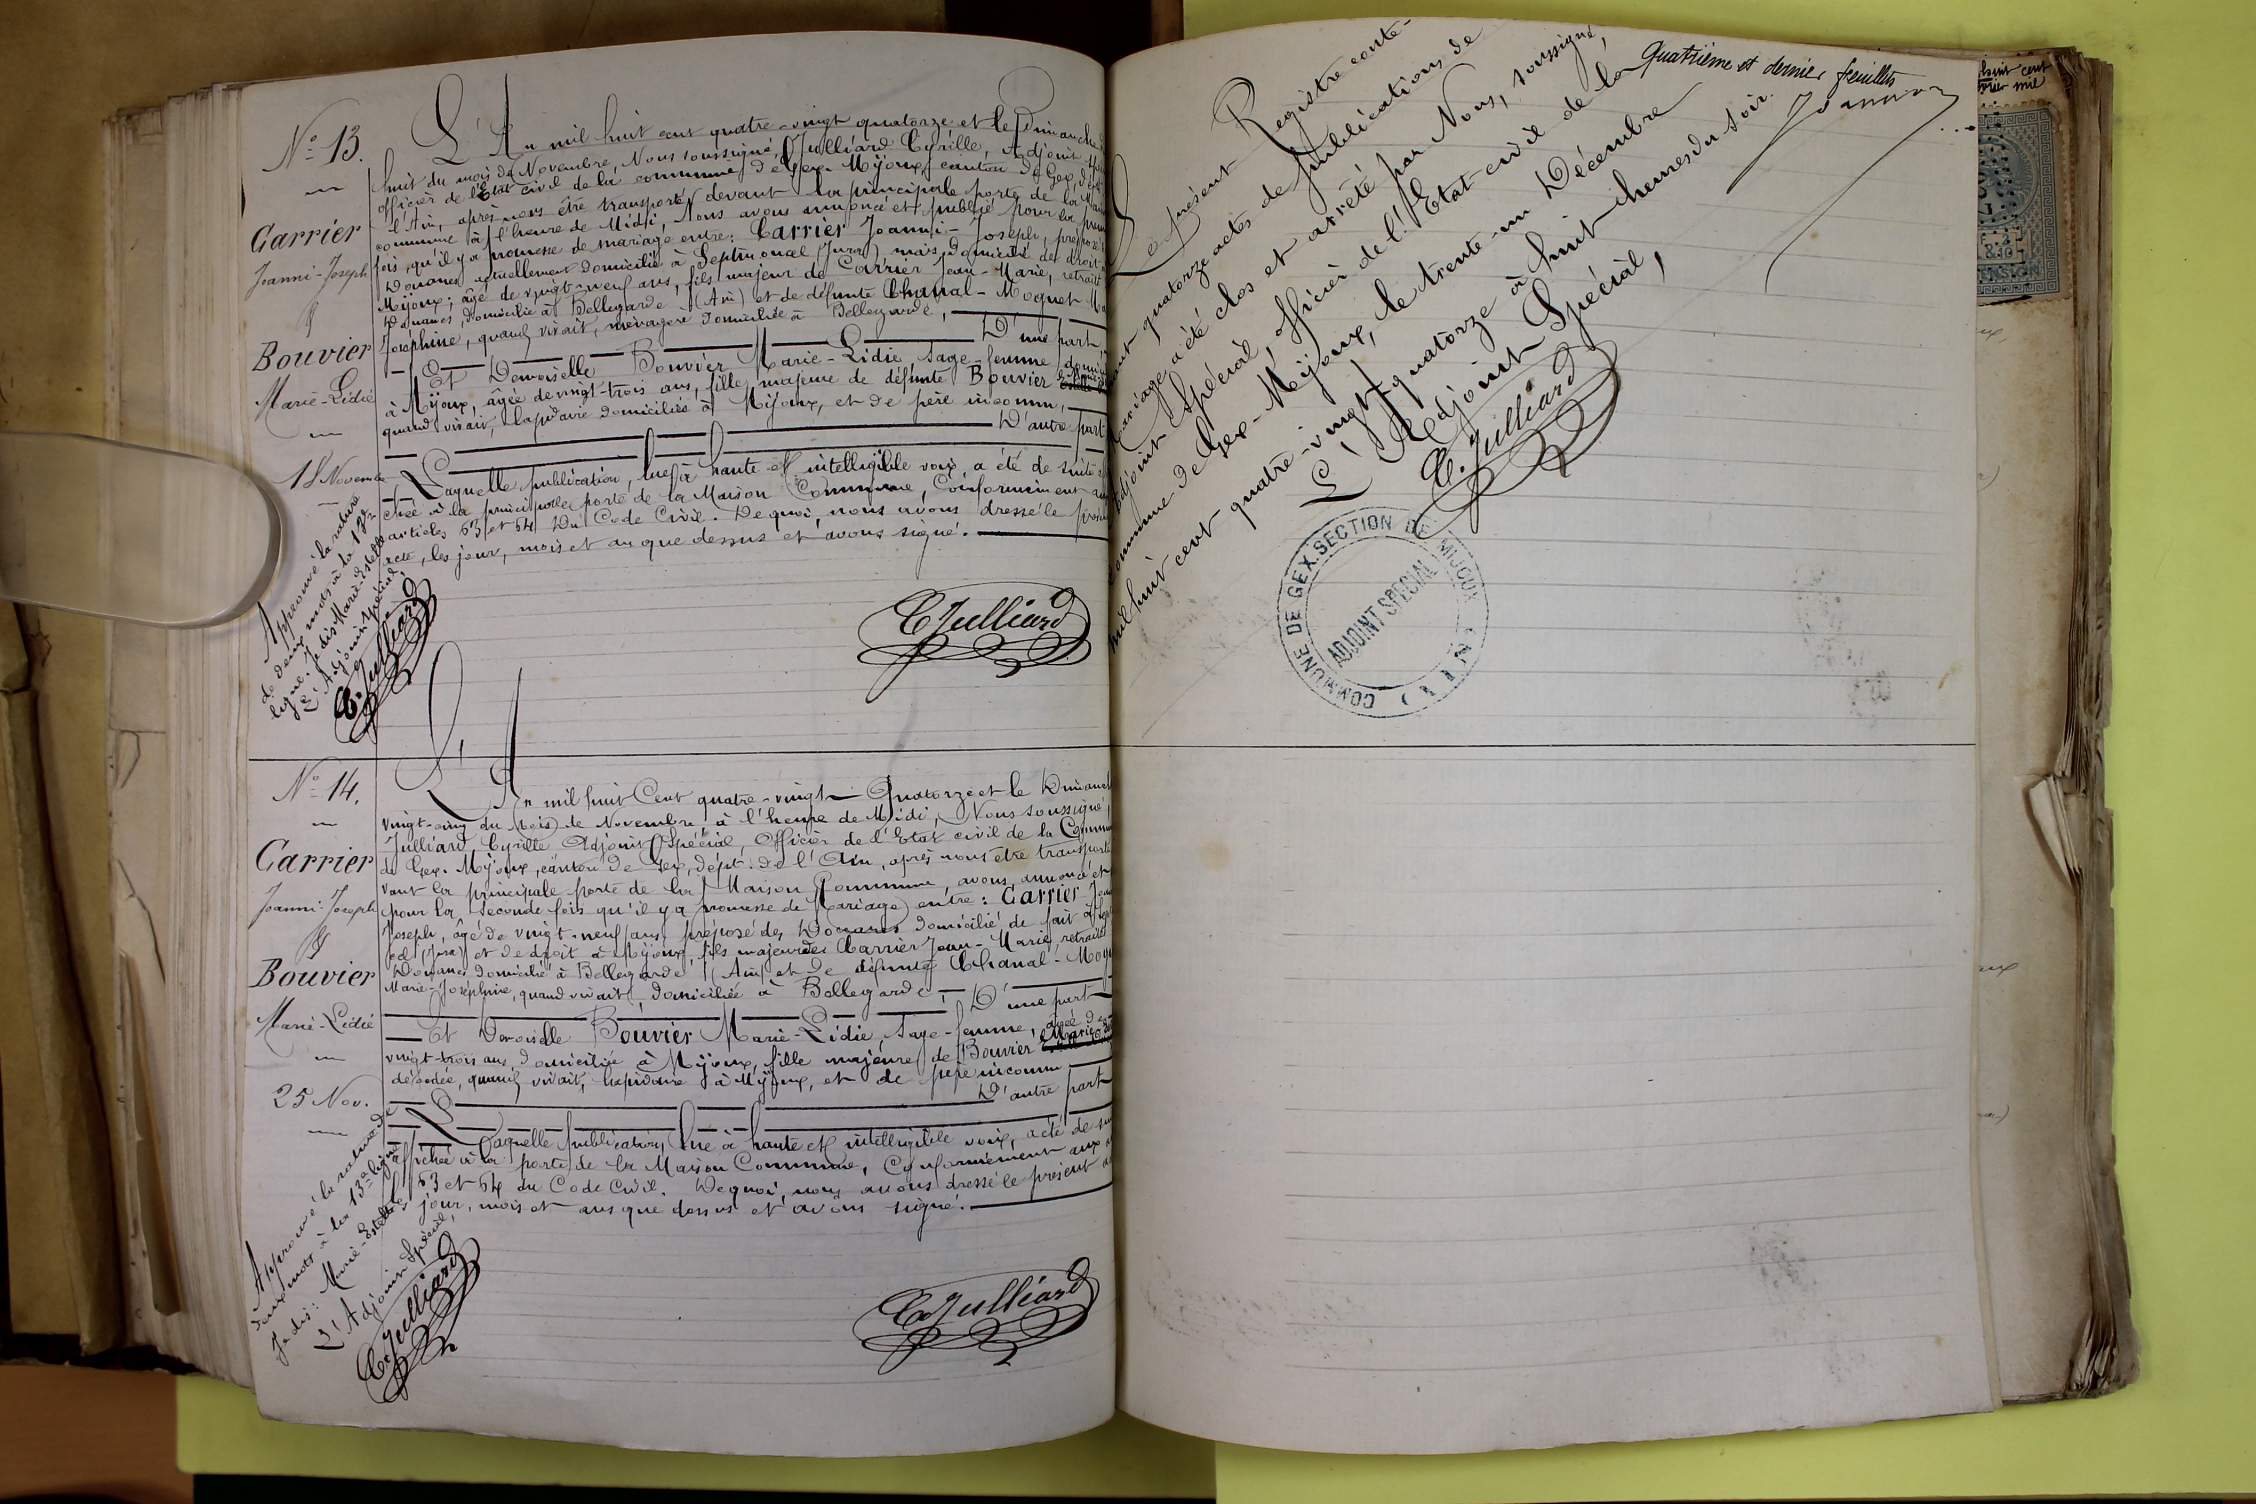 N° 13.
Carrier
Joanni-Joseph
&
Bouvier
Marie-Lidie
18 Novembre
L'An mil huit cent quatre-vingt quatorze et le Dimanche
huit du mois de Novembre, Nous soussigné, Julliard Cyrille, Adjoint
officier de l'Etat civil de la commune de Gex-Mijoux, canton de Gex,
l'Ain, après nous être transporté devant la principale porte de la
commune à l'heure de Midi, Nous avons annoncé et publié pour la
fois, qu'il y a promesse de mariage entre: Carrier Joanni-Joseph, préposé
Douanes actuellement domicilié à Septmoncel (Jura), mais domicilié de droit
Mijoux; âgé de vingt-neuf ans, fils majeur de Carrier Jean-Marie, retraité
Douanes, domicilié à Bellegarde (Ain) et de défunte Chanal-Moquet
Joséphine, quand vivait, ménagère domiciliée à Bellegarde,
D'une part
Et Demoiselle Bouvier Marie-Lidie, sage-femme
à Mijoux, âgée de vingt-trois ans, fille majeure de défunte Bouvier
quand vivait, lapidaire domiciliée à Mijoux, et de père inconnu,
D'autre part
Laquelle publication, lue à haute et intelligible voix, a été de suite
à la principale porte de la Maison Commune, Conformément
articles 63 et 64 du Code Civil. De quoi, nous avons dressé le
acte, les jour, mois et an que dessus et avons signé.
C Julliard
Approuvé la rature
de deux mots à la
ligne. Je dis Marie-Estelle
L'Adjoint Spécial,
C. Julliard
N° 14.
Carrier
Joanni-Joseph
&
Bouvier
Marie-Lidie
25 Nov.
L'An mil huit Cent quatre-vingt Quatorze et le
vingt-cinq du Mois de Novembre à l'heure de Midi, Nous soussigné,
Julliard Cyrille Adjoint Spécial, Officier de l'Etat civil de la
de Gex-Mijoux, canton de Gex, dépt. de l'Ain, après nous être
vant la principale porte de la Maison Commune, avons annoncé et
pour la seconde fois qu'il y a promesse de Mariage entre: Carrier
Joseph, âgé de vingt-neuf ans, préposé des Douanes domicilié de fait à
cel (Jura) et de droit à Mijoux, fils majeur de Carrier Jean-Marie, retraité
Douanes domicilié à Bellegarde (Ain) et de défunte Chanal-
Marie-Joséphine, quand vivait, domiciliée à Bellegarde, D'une part
Et Demoiselle Bouvier Marie-Lidie, sage-femme, âgée de
vingt-trois ans, domiciliée à Mijoux, fille majeure de Bouvier
décédée, quand vivait, lapidaire à Mijoux, et de père inconnu
D'autre part
Laquelle publication, lue à haute et intelligible voix, a été de
affichée à la porte de la Maison Commune, Conformément aux
63 et 64 du Code Civil. De quoi, nous avons dressé le présent
jour, mois et ans que dessus et avons signé.
C Julliard
Approuvé la rature de
deux mots à la 13e ligne
Je dis: Marie-Estelle
L'Adjoint Spécial,
C. Julliard
Quatrième et dernier feuillets
Le présent Registre conte-
nant quatorze actes de publications de
Mariage, a été clos et arrêté par Nous, soussigné,
Adjoint Spécial, officier de l'Etat civil de la
commune de Gex-Mijoux, le trente-un Décembre
mil huit cent quatre-vingt-quatorze à huit heures du soir.
L'Adjoint Spécial,
C. Julliard
COMMUNE DE GEX. SECTION DE MIJOUX (AIN)
ADJOINT SPÉCIAL